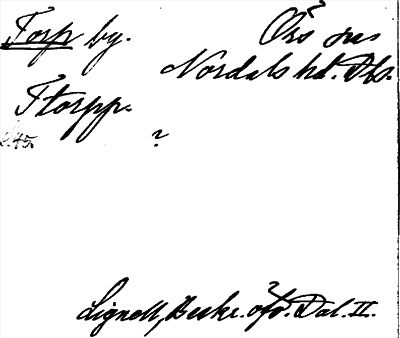 Torp by. Örs sn
Nordals hd. Dls.
Ttorpp.
?
Lignell, Beskr. öfv. Dal. II.